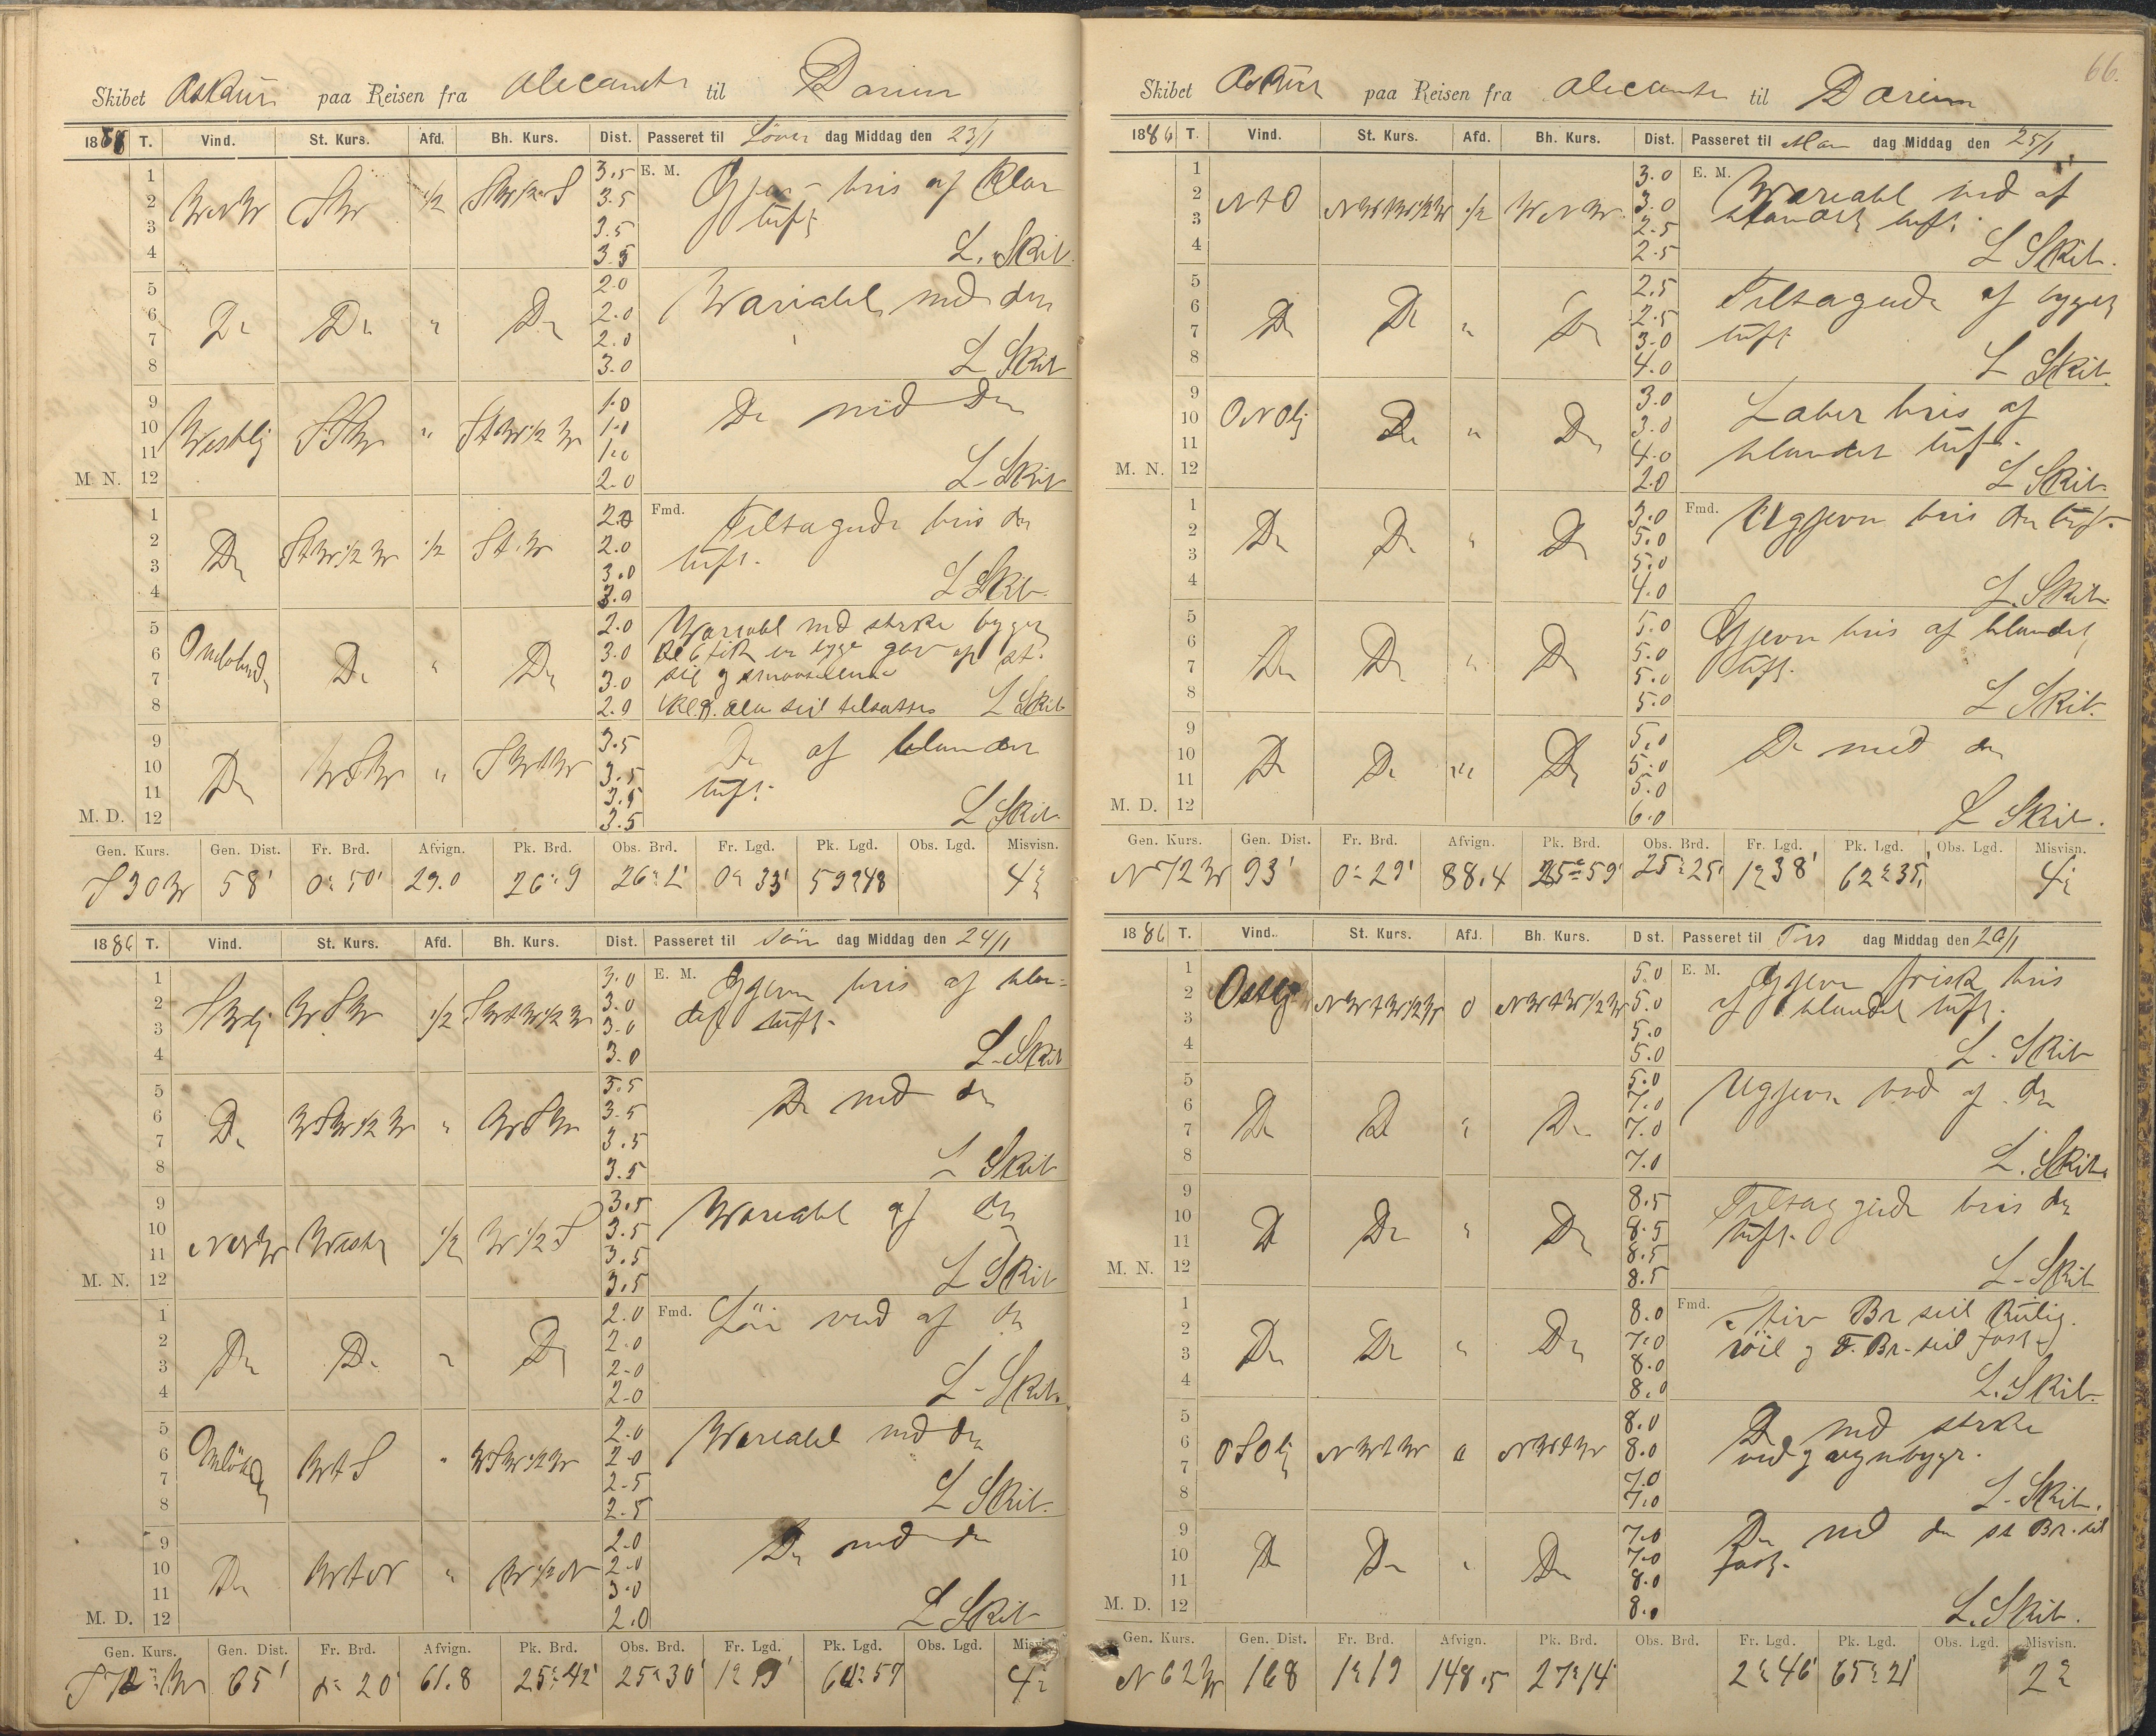 Skibet Askur paa Reisen fra Alecante til Darien
1886 T. Vind. St. Kurs. Afd. Bh. Kurs. Dist. Passeret til Löver dag Middag den 23/1
1 3.5 E. M. Gjevn bris af Klar
2 WNW SW 1/2 SW 1/2 S 3.5 luft
3 3.5
4 3.5 L. Skib.
5 2.0 Wariabl med do
6 Do Do " Do 2.0
7 2.0
8 3.0 L Skib
9 1.0 Do med Do
10 Westlig SSW " StW 1/2 W 1.0
11 1.0
M. N. 12 2.0 L. Skib
1 2.0 Fmd. Tiltagende bris do
2 Do StW 1/2 W 1/2 StW 2.0 luft.
3 3.0
4 3.0 L Skib.
5 2.0 Wariabl med sterke byger
6 Omlöbende Do " Do 3.0 Kl 6 fik en byge gav op st.
7 3.0 seil og
8 2.0 Kl. 8. alle seil tilsattes L Skib
9 3.5 Do af blandet
10 Do WSW " SWtW 3.5 luft.
11 3.5
M. D. 12 3.5 L Skib.
Gen. Kurs. Gen. Dist. Fr. Brd. Afvign. Pk. Brd. Obs. Brd. Fr. Lgd. Pk. Lgd. Obs. Lgd. Misvisn.
S 30 W 58' 0° 50' 29.0 26° 9 26° 2' 0° 33' 59° 48 4°
1886 T. Vind. St. Kurs. Afd. Bh. Kurs. Dist. Passeret til Sön dag Middag den 24/1
1 3.0 E. M. Gjevn bris af blan-
2 SWlig WSW 1/2 SWtW 1/2 W 3.0 det luft.
3 3.0
4 3.0 L. Skib
5 3.5 Do med do
6 Do WSW 1/2 W " WSW 3.5
7 3.5
8 3.5 L Skib
9 3.5 Wariabl af do
10 NNW West 1/2 W 1/2 S 3.5
11 3.5
M. N. 12 3.5 L Skib
1 2.0 Fmd. Löi vind af do
2 Do Do " Do 2.0
3 2.0
4 2.0 L. Skib.
5 2.0 Wariabl med do
6 Omlöbende WtS " WSW 1/2 W 2.0
7 2.5
8 2.5 L Skib.
9 2.0 Do med do
10 Do WtN " W 1/2 N 2.0
11 3.0
M. D. 12 2.0 L Skib
Gen. Kurs. Gen. Dist. Fr. Brd. Afvign. Pk. Brd. Obs. Brd. Fr. Lgd. Pk. Lgd. Obs. Lgd. Misvisn.
S 72° W 65' 0° 20' 61.8 25° 42' 25° 30' 1° 9' 60° 57 4°
66.
Skibet Askur paa Reisen fra Alecante til Darien
1886 T. Vind. St. Kurs. Afd. Bh. Kurs. Dist. Passeret til Man dag Middag den 25/1
1 3.0 E. M. Wariabl vind af
2 NtO NWtW 1/2 W 1/2 WNW 3.0 blandet luft.
3 2.5
4 2.5 L Skib.
5 2.5 Tiltagende af byget
6 Do Do " Do 2.5 luft
7 3.0
8 4.0 L Skib.
9 3.0 Laber bris af
10 ONOlig Do " Do 3.0 blandet luft.
11 4.0
M. N. 12 2.0 L Skib.
1 3.0 Fmd. Ugjevn bris do luft.
2 Do Do " Do 5.0
3 5.0
4 4.0 L. Skib.
5 5.0 Gjevn bris af blandet
6 Do Do " Do 5.0 luft.
7 5.0
8 5.0 L Skib.
9 5.0 Do med do
10 Do Do " Do 5.0
11 5.0
M. D. 12 6.0 L Skib.
Gen. Kurs. Gen. Dist. Fr. Brd. Afvign. Pk. Brd. Obs. Brd. Fr. Lgd. Pk. Lgd. Obs. Lgd. Misvisn.
N 72 W 93' 0° 29' 88.4 25° 59' 25° 25' 1° 38' 62° 35' 4°
1886 T. Vind. St. Kurs. Afd. Bh. Kurs. Dist. Passeret til Tirs dag Middag den 26/1
1 5.0 E. M. Gjevn frisk bris
2 Ostlig NWtW 1/2 W 0 NWtW 1/2 W 5.0 af blandet luft.
3 5.0
4 5.0 L. Skib
5 5.0 Ugjevn vind af do
6 Do Do " Do 7.0
7 7.0
8 7.0 L. Skib.
9 8.5 Tiltaggende bris do
10 Do Do " Do 8.5 luft.
11 8.5
M. N. 12 8.5 L. Skib
1 8.0 Fmd. Stiv Br seil Kulig.
2 Do Do " Do 7.0 röil og F. Br. seil fast
3 8.0
4 8.0 L. Skib.
5 8.0 Do med sterke
6 OSOlig NWtW 0 NWtW 8.0 vind og regnbyger.
7 7.0
8 7.0 L. Skib.
9 7.0 Do med do st Br. seil
10 Do Do " Do 7.0 fast.
11 8.0
M. D. 12 8.0 L. Skib.
Gen. Kurs. Gen. Dist. Fr. Brd. Afvign. Pk. Brd. Obs. Brd. Fr. Lgd. Pk. Lgd. Obs. Lgd. Misvisn.
N 62 W 168 1° 19 148.5 27° 14' 2° 46' 65° 21' 2°